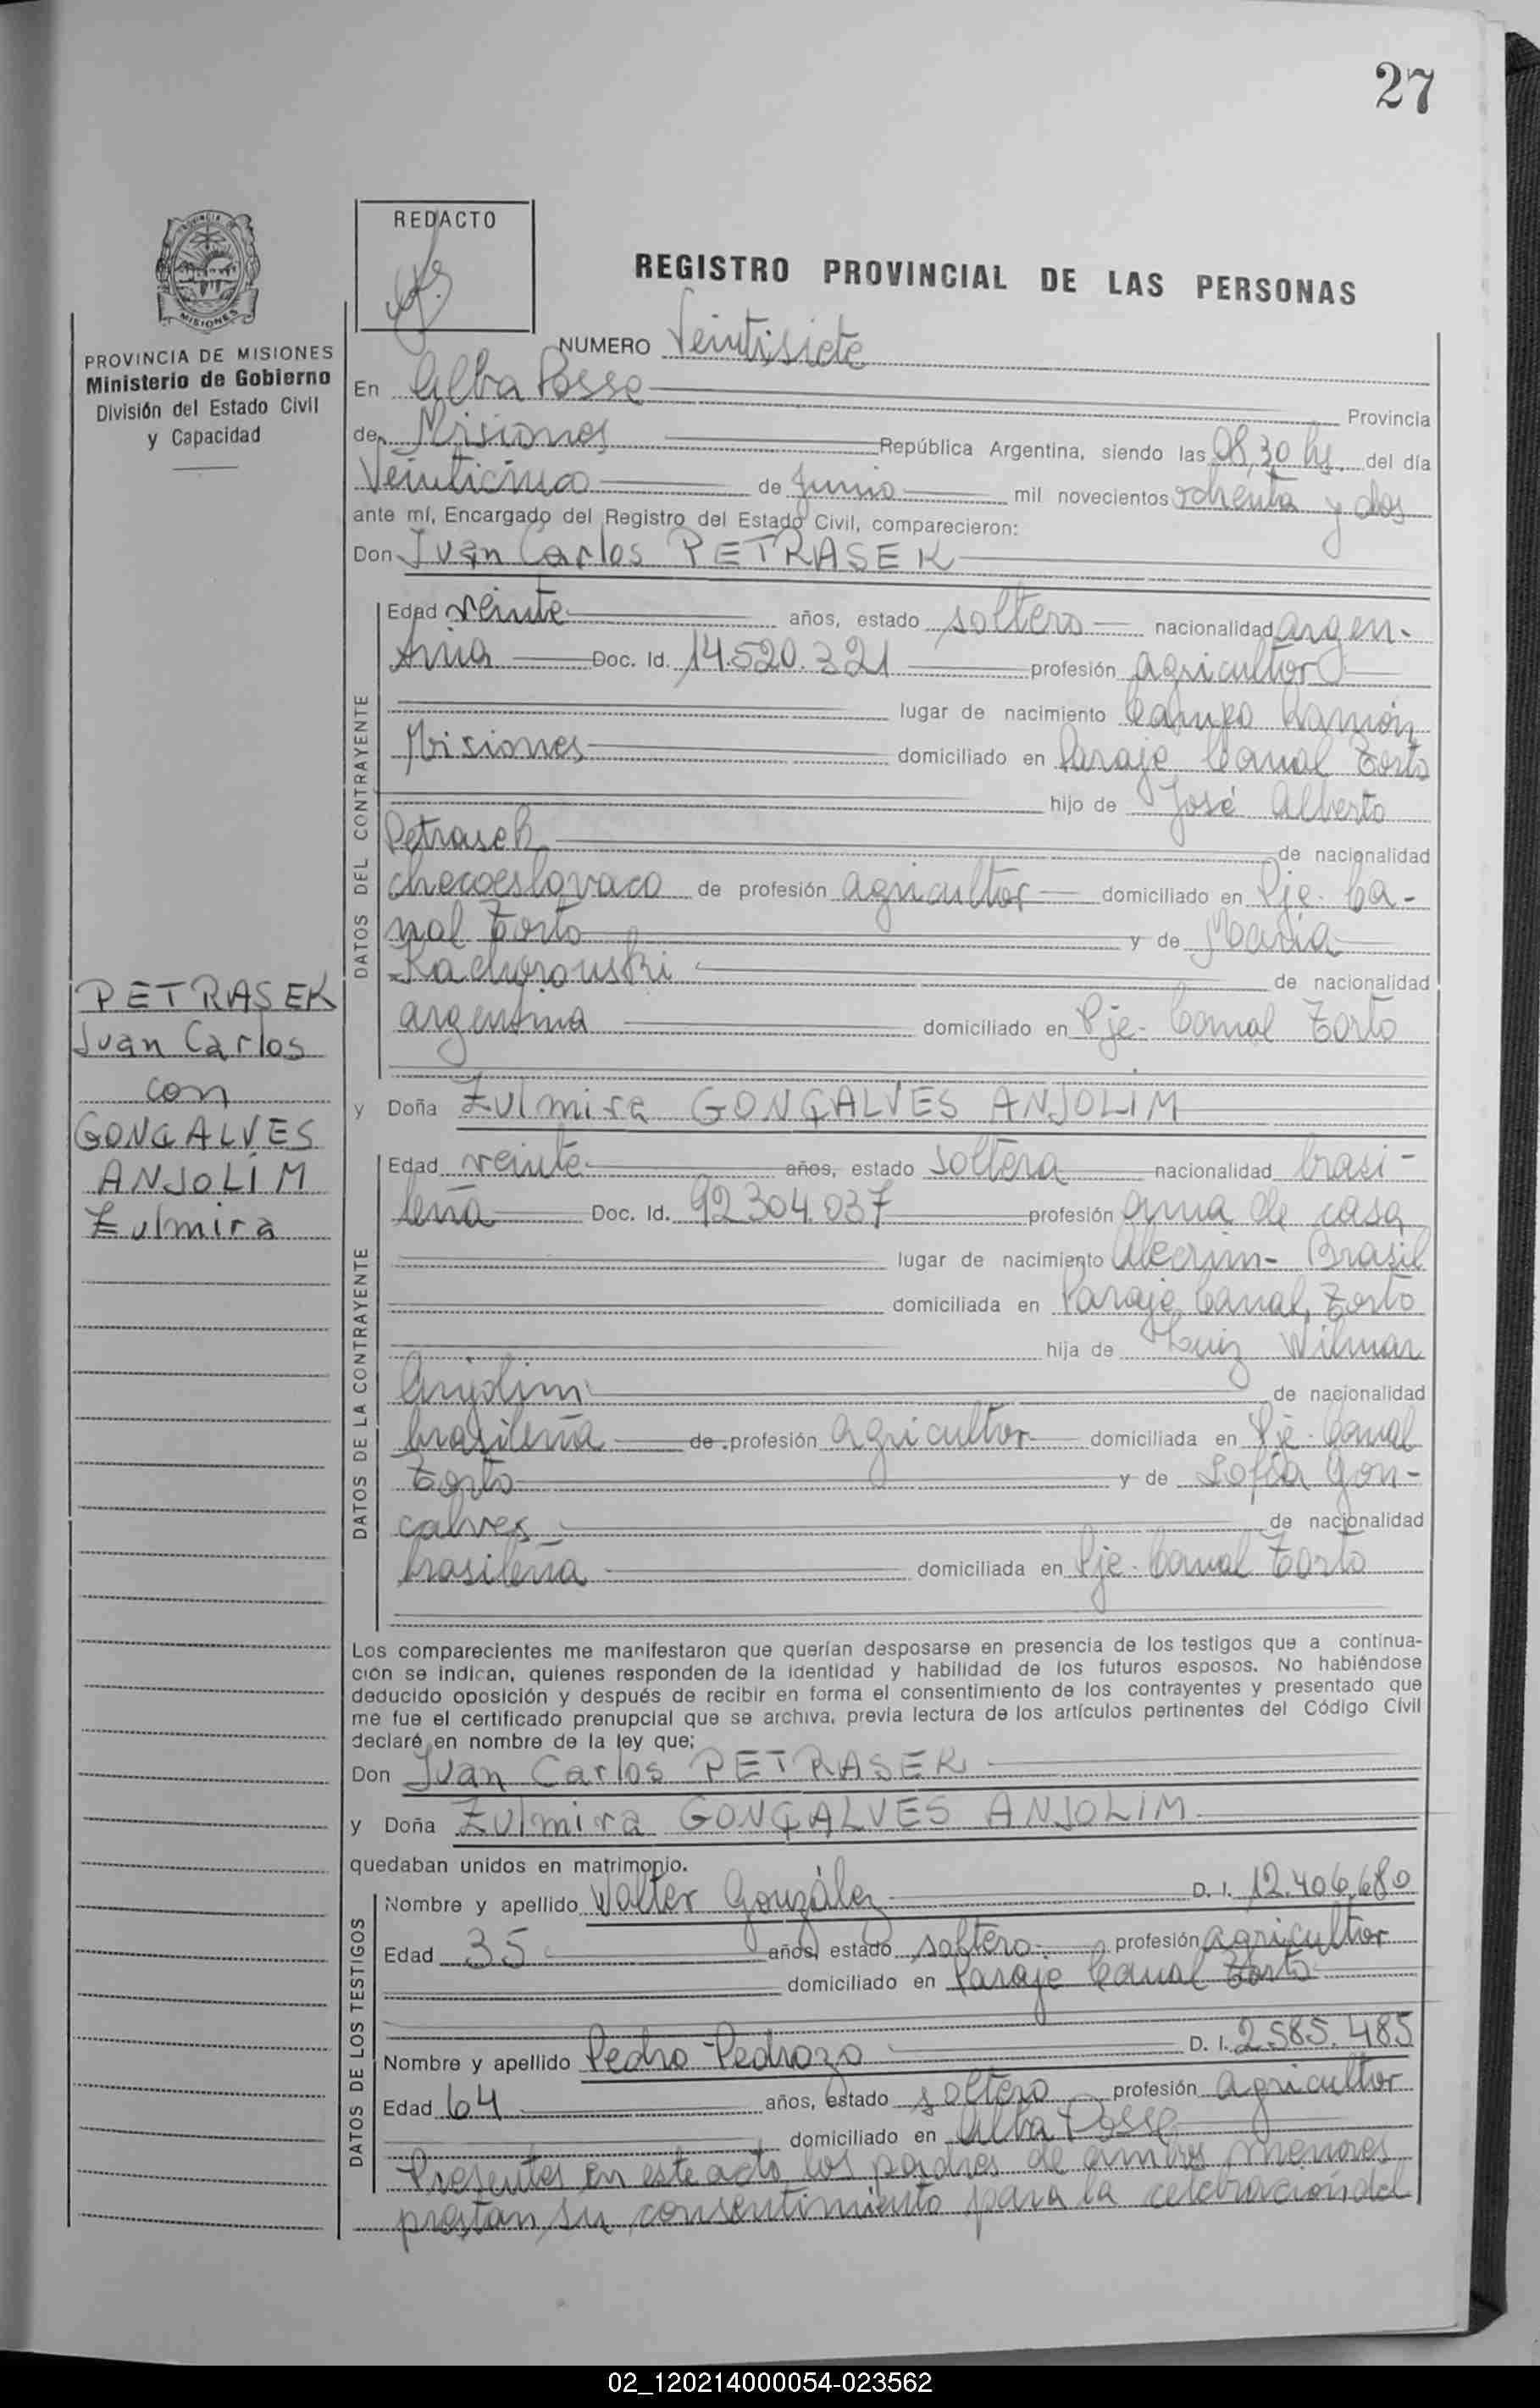 27
REDACTO
REGISTRO PROVINCIAL DE LAS PERSONAS
PROVINCIA DE
MISIONES
PROVINCIA DE MISIONES
Ministerio de Gobierno
División del Estado Civil
y Capacidad
PETRASEK
Juan Carlos
con
GONÇALVES
ANJOLIM
Zulmira
NUMERO Veintisiete
En Alba Posse Provincia
de Misiones República Argentina, siendo las 08,30 hs. del día
Veinticinco de Junio mil novecientos ochenta y dos
ante mí, Encargado del Registro del Estado Civil, comparecieron:
Don Juan Carlos PETRASEK
DATOS DEL CONTRAYENTE
Edad veinte años, estado soltero nacionalidad argen-
tina Doc. Id. 14.520.321 profesión agricultor
lugar de nacimiento Campo Ramón
Misiones domiciliado en Paraje Canal Torto
hijo de José Alberto
Petrasek de nacionalidad
checoeslovaco de profesión agricultor domiciliado en Pje. Ca-
nal Torto y de María
Kachorouski de nacionalidad
argentina domiciliado en Pje. Canal Torto
y Doña Zulmira GONÇALVES ANJOLIM
DATOS DE LA CONTRAYENTE
Edad veinte años, estado soltera nacionalidad brasi-
leña Doc. Id. 92304.037 profesión ama de casa
lugar de nacimiento Alecrim- Brasil
domiciliada en Paraje Canal Torto
hija de Luiz Wilmar
Anjolim de nacionalidad
brasileña de profesión agricultor domiciliada en Pje. Canal
Torto y de Sofía Gon-
calves de nacionalidad
brasileña domiciliada en Pje. Canal Torto
Los comparecientes me manifestaron que querían desposarse en presencia de los testigos que a continua-
ción se indican, quienes responden de la identidad y habilidad de los futuros esposos. No habiéndose
deducido oposición y después de recibir en forma el consentimiento de los contrayentes y presentado que
me fue el certificado prenupcial que se archiva, previa lectura de los artículos pertinentes del Código Civil
declaré en nombre de la ley que;
Don Juan Carlos PETRASEK
y Doña Zulmira GONÇALVES ANJOLIM
quedaban unidos en matrimonio.
DATOS DE LOS TESTIGOS
Nombre y apellido Walter González D. I. 12.406.680
Edad 35 años, estado soltero profesión agricultor
domiciliado en Paraje Canal Torto
Nombre y apellido Pedro Pedrozo D. I. 2.585.485
Edad 64 años, estado soltero profesión agricultor
domiciliado en Alba Posse
Presentes en este acto los padres de ambos menores
prestan su consentimiento para la celebración del
02_120214000054-023562